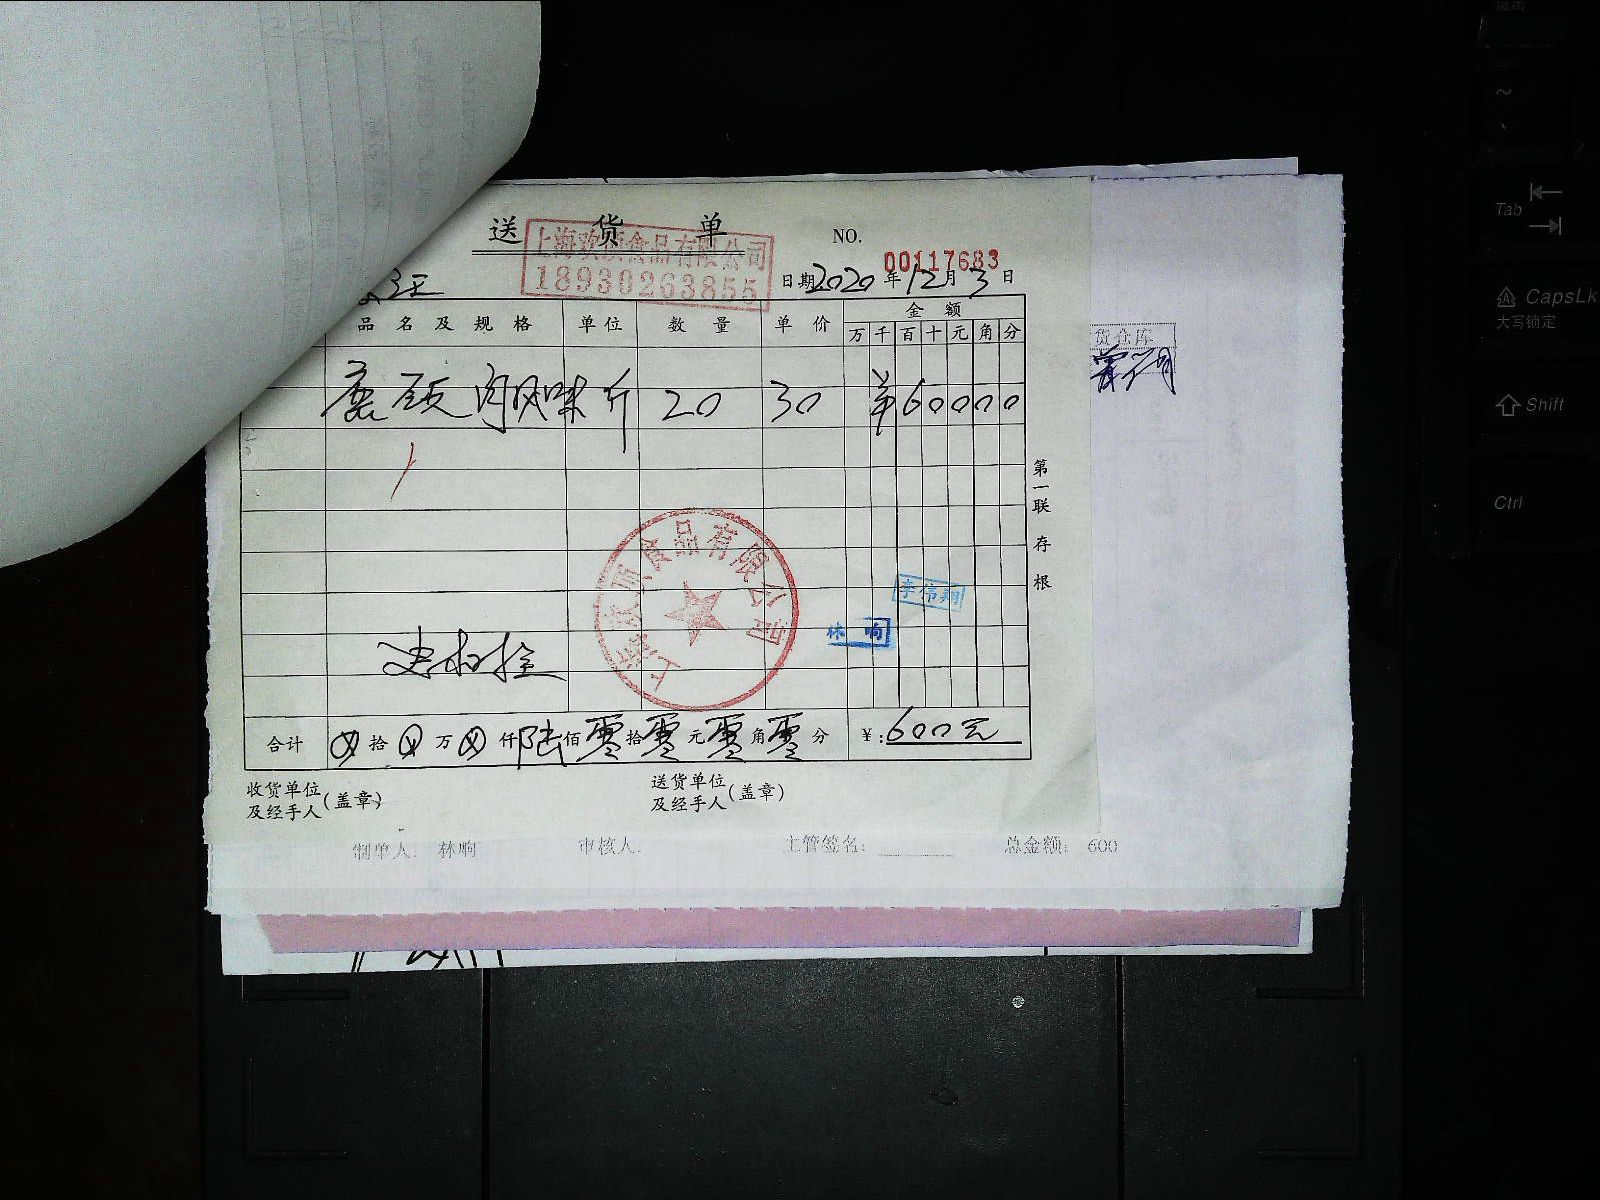 送货单
NO.
00117683
上海欢颀食品有限公司
18930263855
日期2020年12月3日
品名及规格 单位 数量 单价 金额
万 千 百 十 元 角 分
肉风味 斤 20 30 ¥60000
第一联 存根
食品有限公司
李伟翔
林响
合计 拾 万 仟 陆 佰 零 拾 零 元 零 角 零 分 ¥:600元
收货单位及经手人(盖章)
送货单位及经手人(盖章)
制单人: 林响 审核人: 主管签名: 总金额: 600
货仓库
Tab
CapsLk
大写锁定
Shift
Ctrl